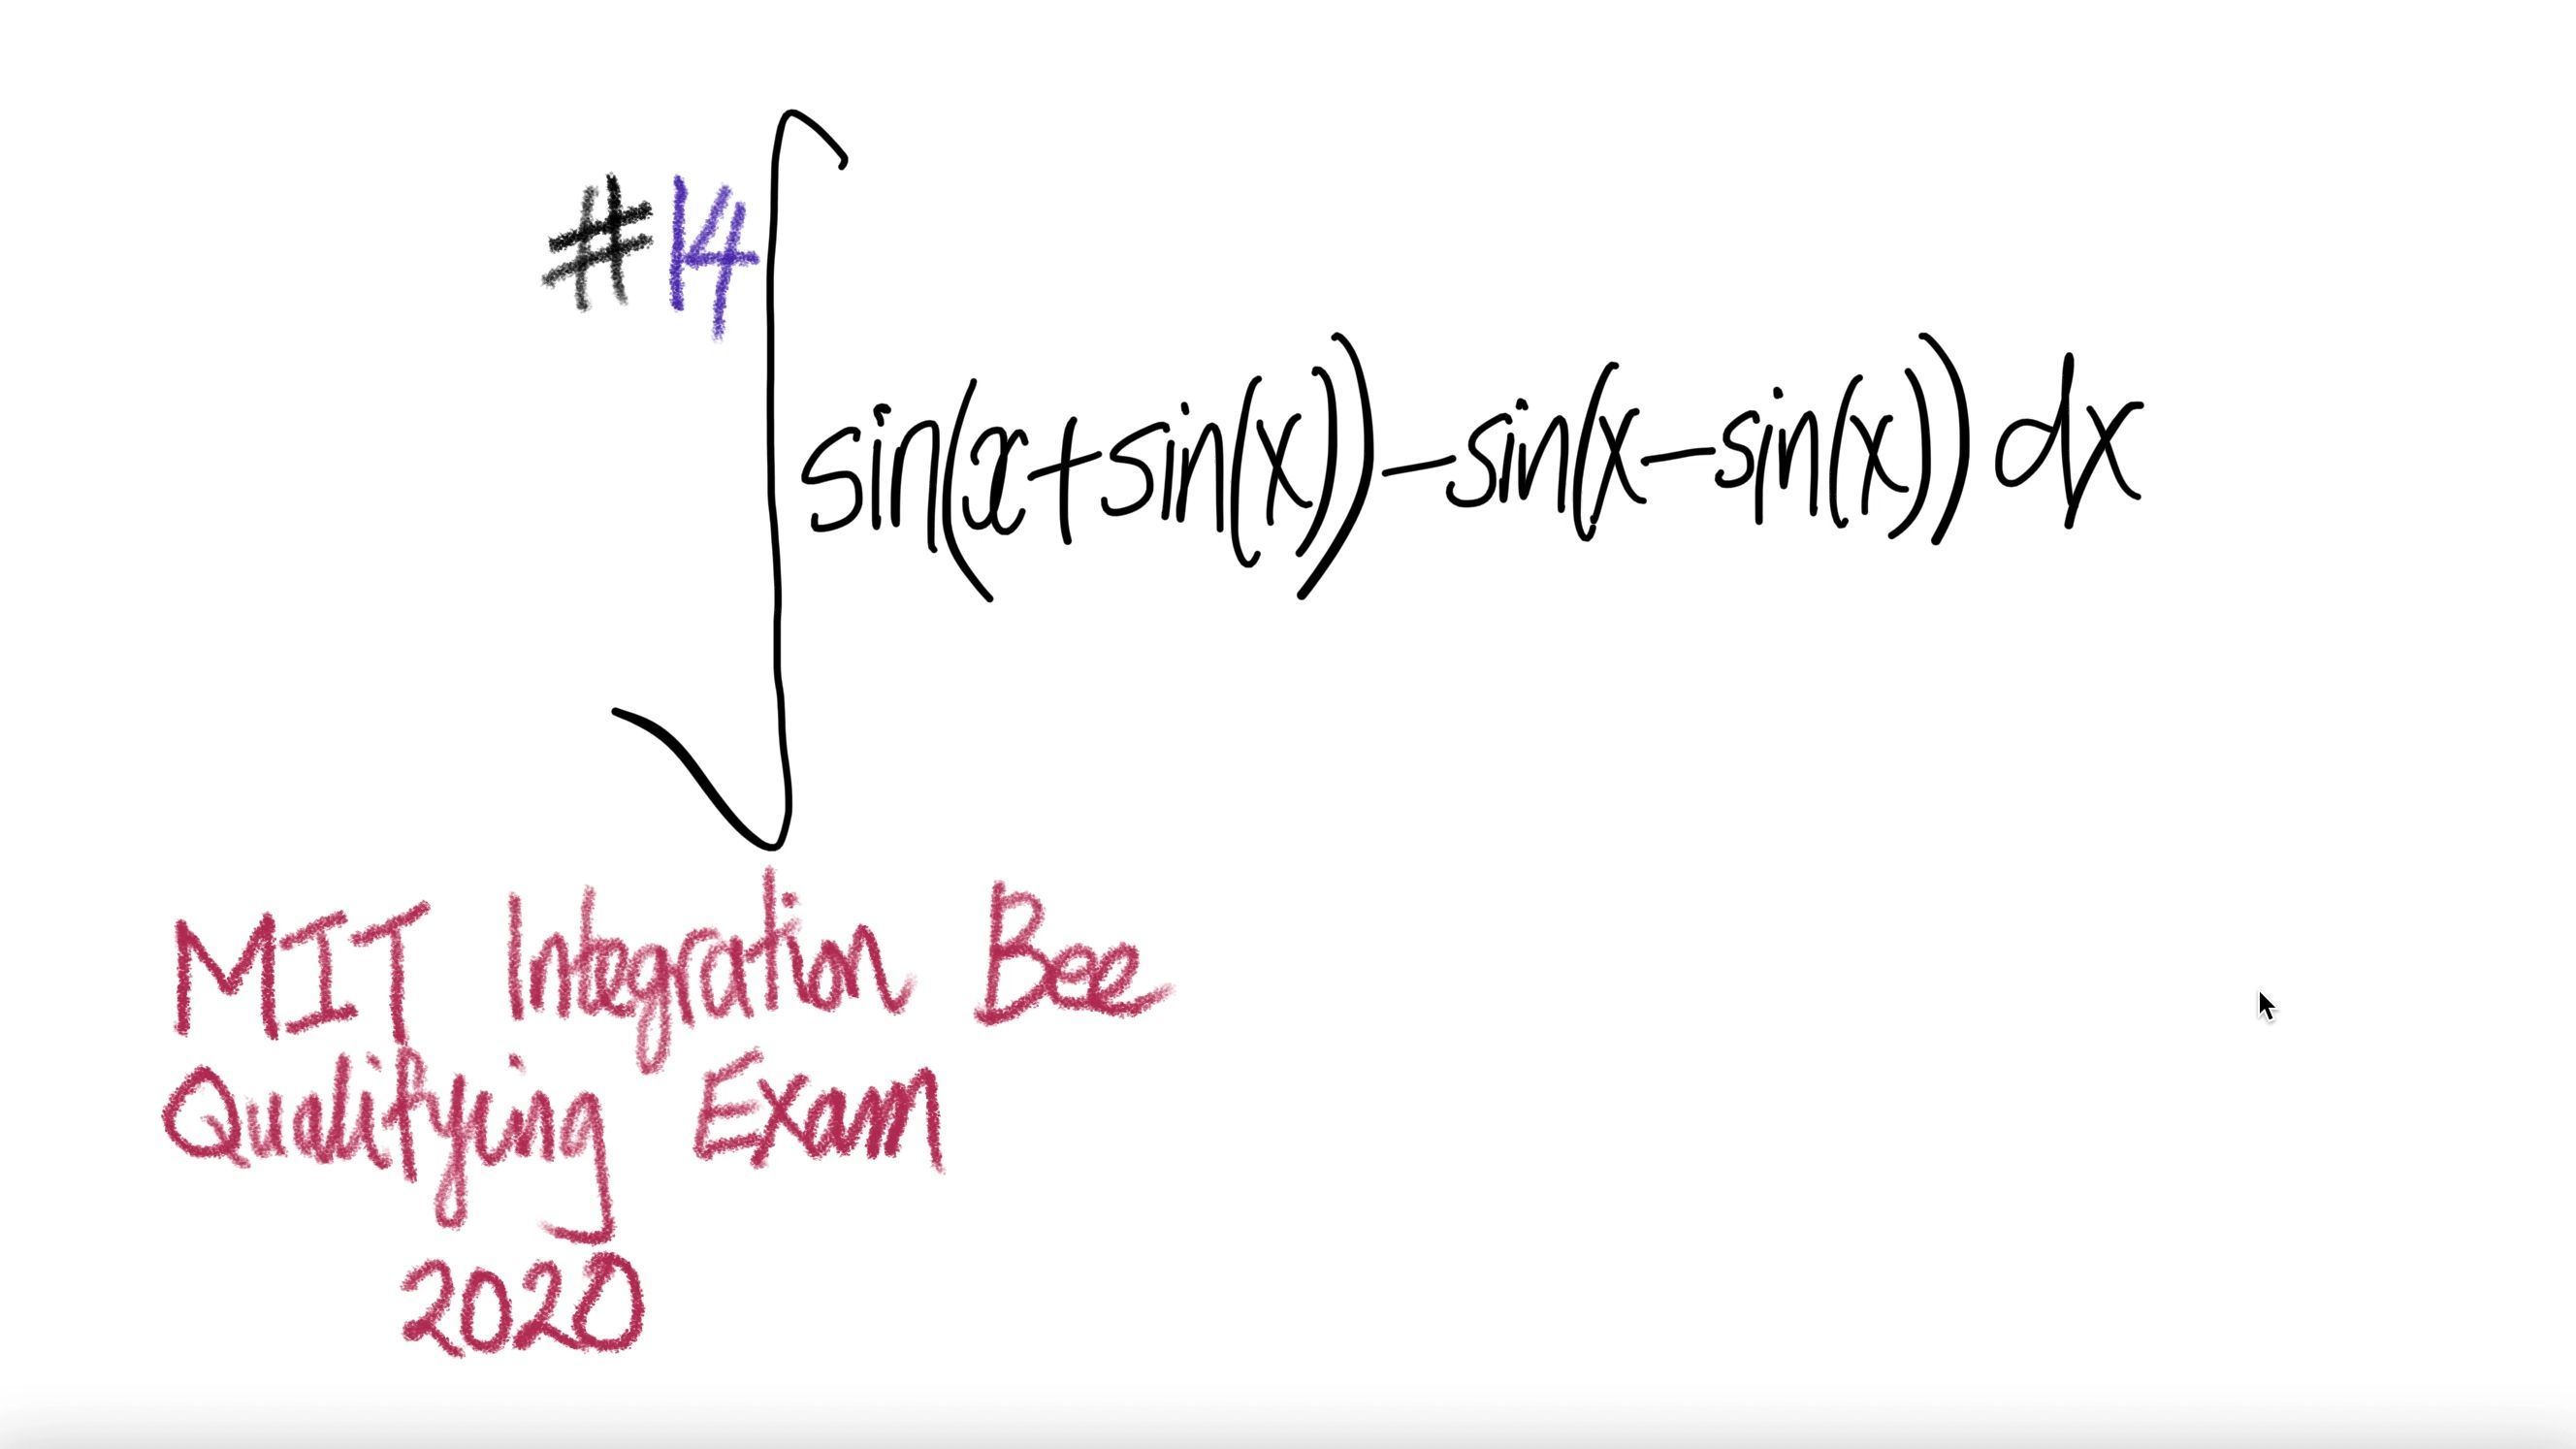 #14
∫ sin(x+sin(x))-sin(x-sin(x)) dx
MIT Integration Bee
Qualifying Exam
2020